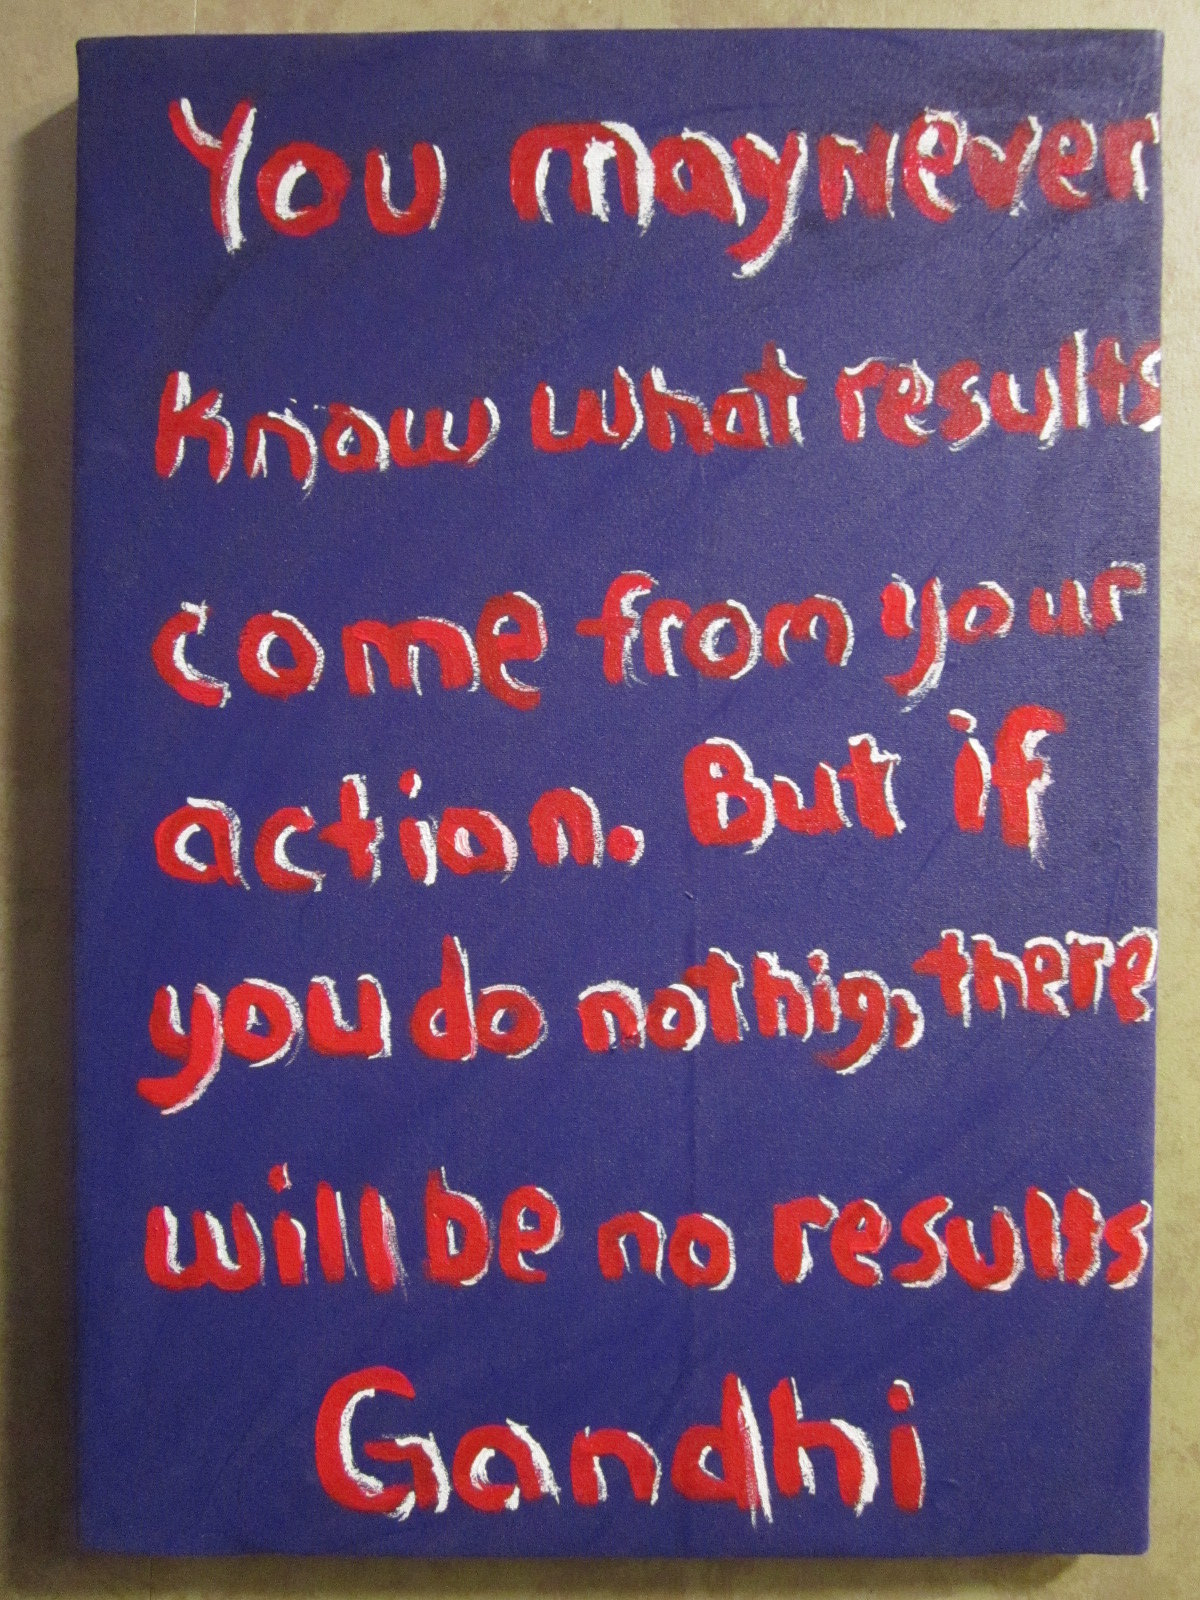 You may never
know what results
come from your
action. But if
you do nothig, there
will be no results
Gandhi